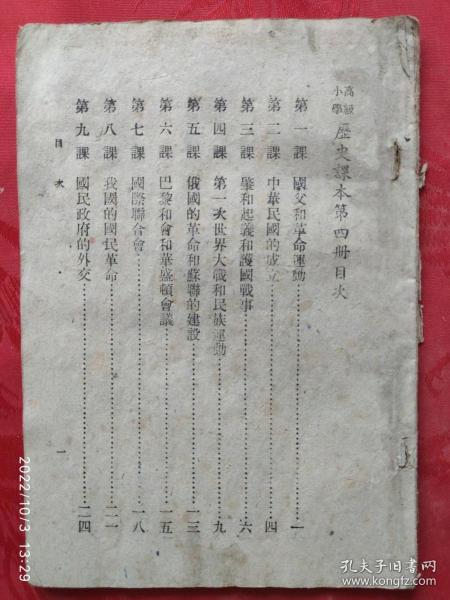 高級小學 歷史課本第四冊目次
第一課 國父和革命運動……一
第二課 中華民國的成立……四
第三課 肇和起義和護國戰事……六
第四課 第一次世界大戰和民族運動……九
第五課 俄國的革命和蘇聯的建設……一三
第六課 巴黎和會和華盛頓會議……一五
第七課 國際聯合會……一八
第八課 我國的國民革命……二一
第九課 國民政府的外交……二四
目次 一
2022/10/3 13:29
孔夫子旧书网
www.kongfz.com